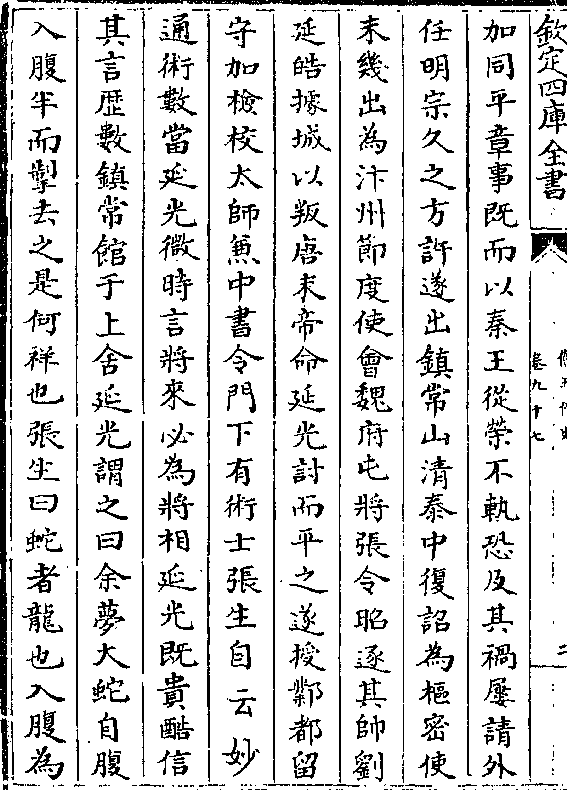 欽定四庫全書
卷九十七
二
加同平章事既而以秦王從榮不軌恐及其禍屢請外
任明宗久之方許遂出鎮常山清泰中復詔為樞密使
未幾出為汴州節度使會魏府屯將張令昭逐其帥劉
延皓據城以叛唐末帝命延光討而平之遂授鄴都留
守加檢校太師兼中書令門下有術士張生自云妙
通術數當延光微時言將來必為將相延光既貴酷信
其言歴數鎮常館于上舍延光謂之曰余夢大蛇自腹
入腹半而掣去之是何祥也張生曰蛇者龍也入腹為